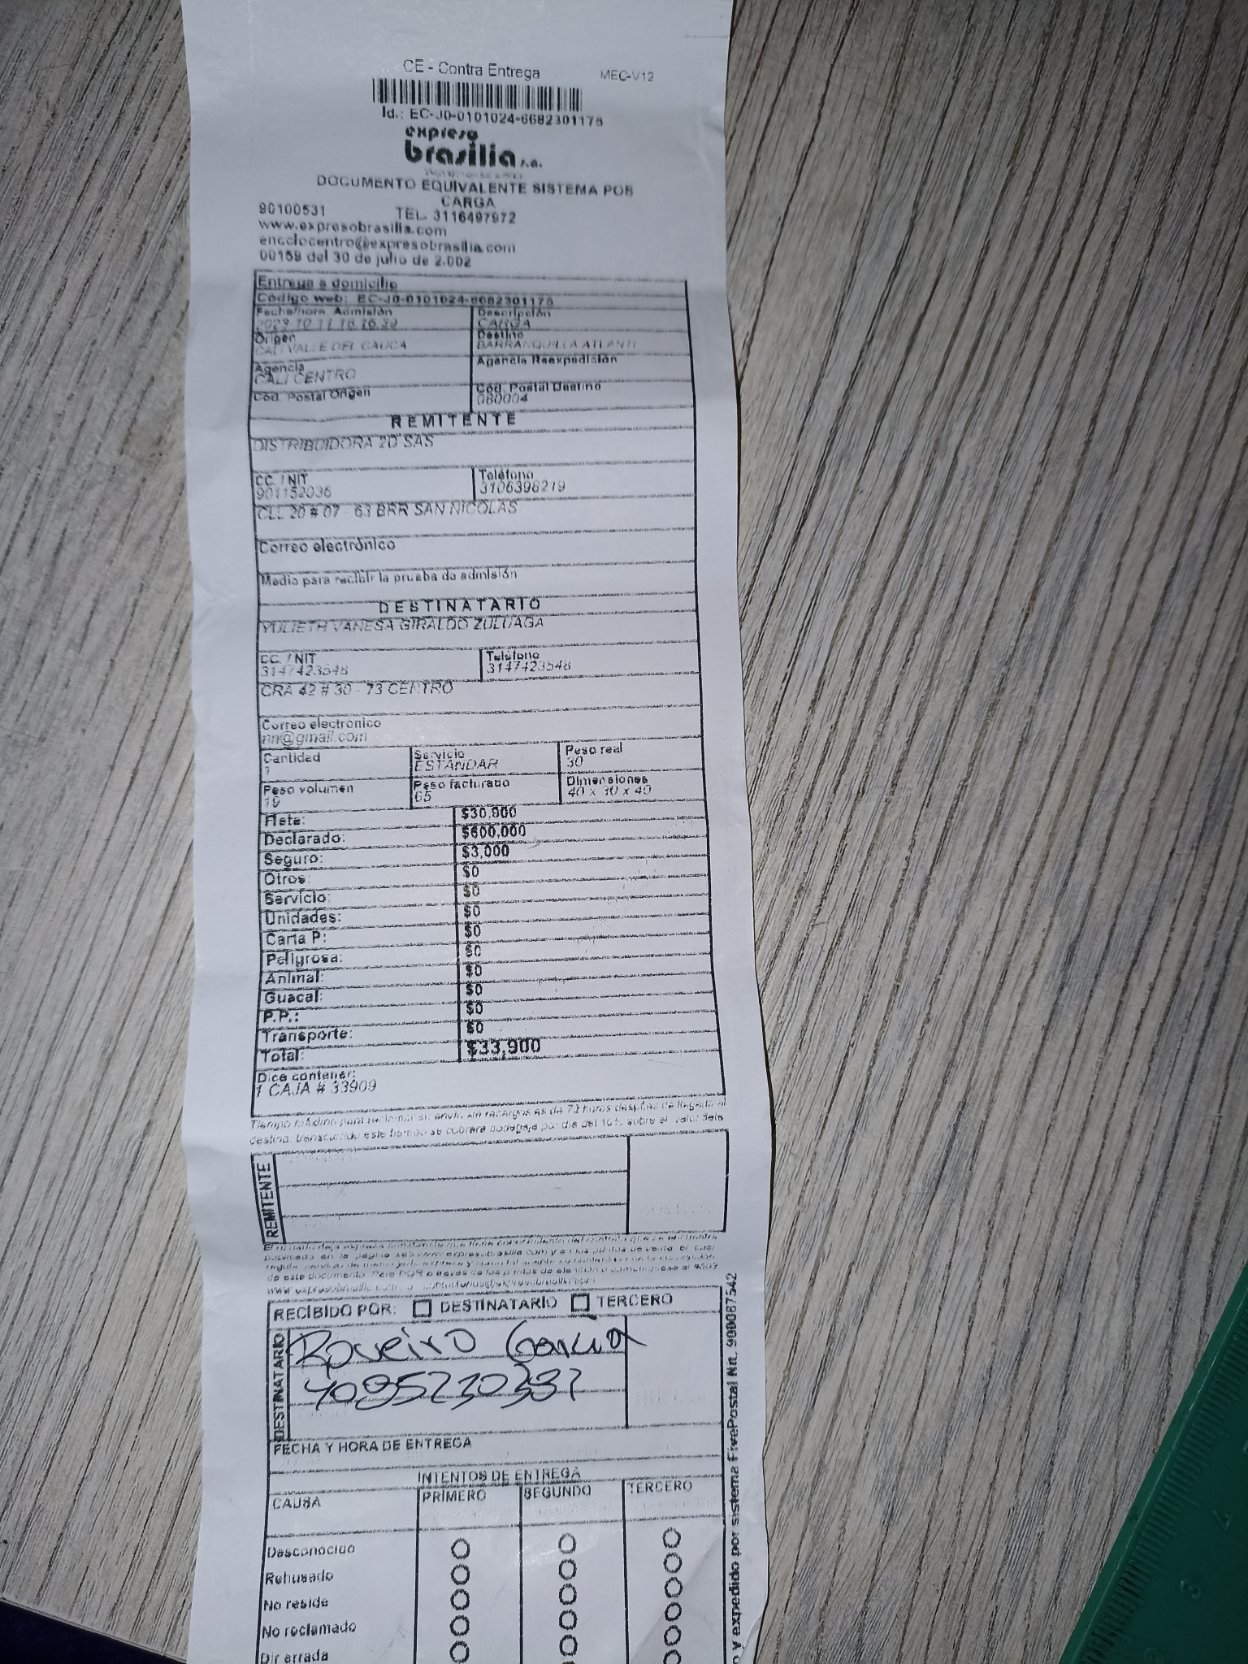 CE - Contra Entrega MEC-V12
Id.: EC-J0-0101024-6682301175
expreso
brasilia s.a.
DOCUMENTO EQUIVALENTE SISTEMA POS
CARGA
90100531 TEL. 3116497972
www.expresobrasilia.com
encclocentro@expresobrasilia.com
00159 del 30 de julio de 2.002
Entrega a domicilio
Código web: EC-J0-0101024-6682301175
Fecha/hora Admisión Descripción
CARGA
Origen Destino
CALI VALLE DEL CAUCA BARRANQUILLA ATLANTI
Agencia Agencia Reexpedición
CALI CENTRO
Cod. Postal Origen Cod. Postal Destino
080004
REMITENTE
DISTRIBUIDORA 2D SAS
CC. / NIT Teléfono
901152036 3106398219
CLL 20 # 07 - 63 BRR SAN NICOLAS
Correo electrónico
Medio para recibir la prueba de admisión
DESTINATARIO
YULIETH VANESA GIRALDO ZULUAGA
CC. / NIT Teléfono
3147423548 3147423548
CRA 42 # 30 - 73 CENTRO
Correo electrónico
nn@gmail.com
Cantidad Servicio Peso real
1 ESTÁNDAR 30
Peso volumen Peso facturado Dimensiones
19 65 40 x 30 x 40
Flete: $30,900
Declarado: $600,000
Seguro: $3,000
Otros: $0
Servicio: $0
Unidades: $0
Carta P: $0
Peligrosa: $0
Animal: $0
Guacal: $0
P.P.: $0
Transporte: $0
Total: $33,900
Dice contener:
1 CAJA # 33909
REMITENTE
RECIBIDO POR: DESTINATARIO TERCERO
DESTINATARIO
García
FECHA Y HORA DE ENTREGA
INTENTOS DE ENTREGA
CAUSA PRIMERO SEGUNDO TERCERO
Desconocido
Rehusado
No reside
No reclamado
Dir errada
y expedido por sistema FivePostal Nit. 900087542